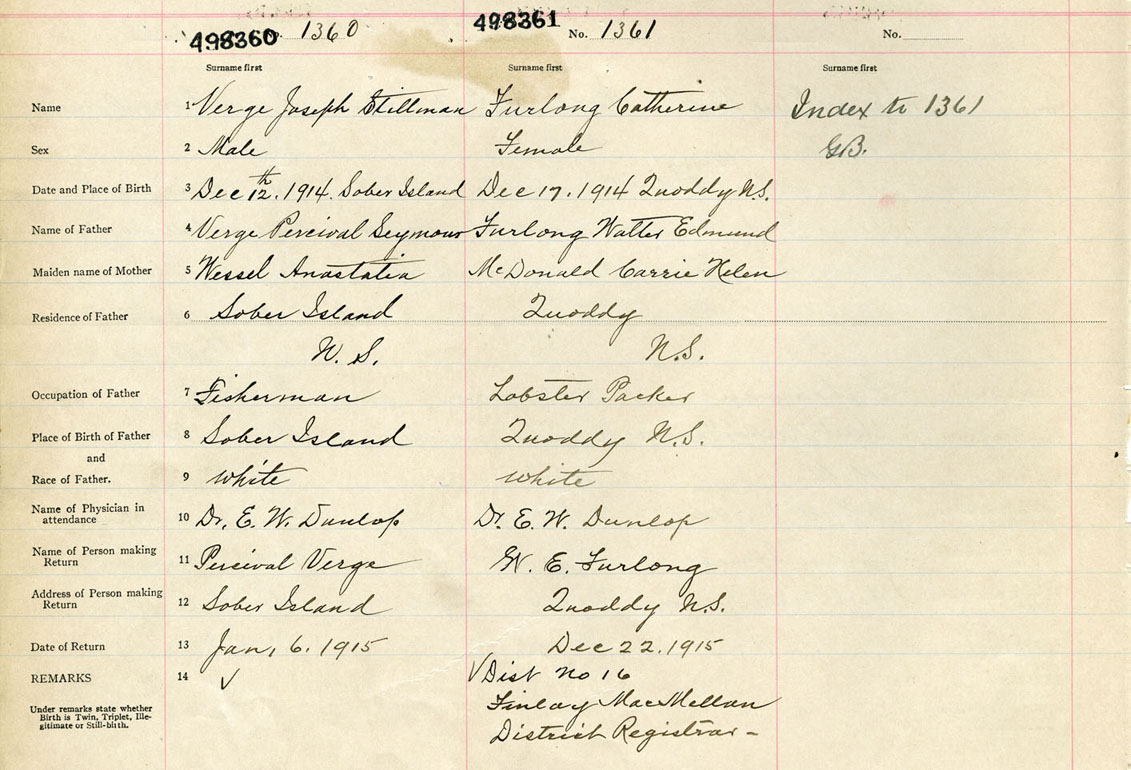 498360 No. 1360 498361 No. 1361 No.
Surname first Surname first Surname first
Name 1 Verge Joseph Stillman Furlong Catherine Index to 1361
Sex 2 Male Female G.B.
Date and Place of Birth 3 Dec 12th, 1914. Sober Island Dec 17, 1914 Quoddy N.S.
Name of Father 4 Verge Percival Seymour Furlong Walter Edmund
Maiden name of Mother 5 Wessel Anastatia McDonald Carrie Helen
Residence of Father 6 Sober Island Quoddy
N.S. N.S.
Occupation of Father 7 Fisherman Lobster Packer
Place of Birth of Father 8 Sober Island Quoddy N.S.
and
Race of Father. 9 White White
Name of Physician in
attendance 10 Dr. E. W. Dunlop Dr. E. W. Dunlop
Name of Person making
Return 11 Percival Verge W. E. Furlong
Address of Person making
Return 12 Sober Island Quoddy N.S.
Date of Return 13 Jan, 6, 1915 Dec 22, 1915
REMARKS 14 √ √ Dist No 16
Under remarks state whether
Birth is Twin, Triplet, Ille-
gitimate or Still-birth.
Finlay MacMillan
District Registrar -